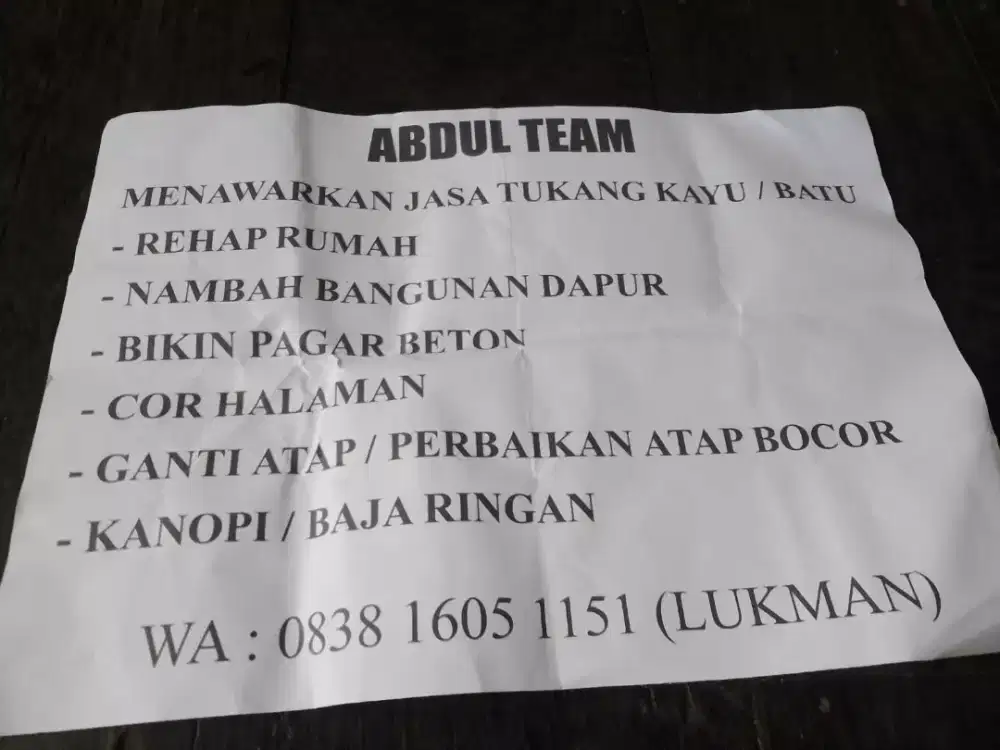 ABDUL TEAM
MENAWARKAN JASA TUKANG KAYU / BATU
- REHAP RUMAH
- NAMBAH BANGUNAN DAPUR
- BIKIN PAGAR BETON
- COR HALAMAN
- GANTI ATAP / PERBAIKAN ATAP BOCOR
- KANOPI / BAJA RINGAN
WA : 0838 1605 1151 (LUKMAN)